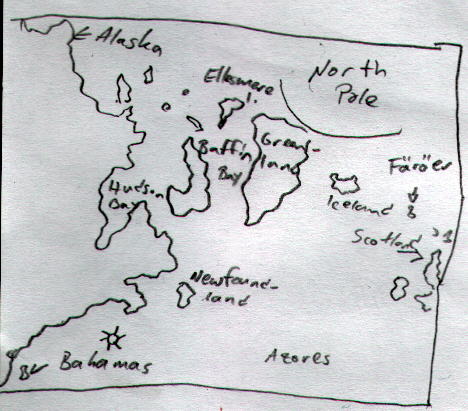 Alaska
Ellesmere
I.
North
Pole
Baffin
Bay
Green-
land
Färöer
Hudson
Bay
Iceland
Scotland
Newfound-
land
Bahamas
Azores